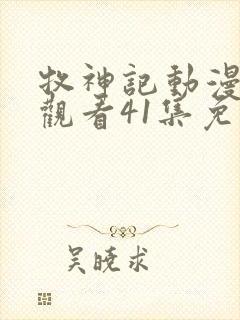 牧神記動漫
觀看41集免
吳曉求